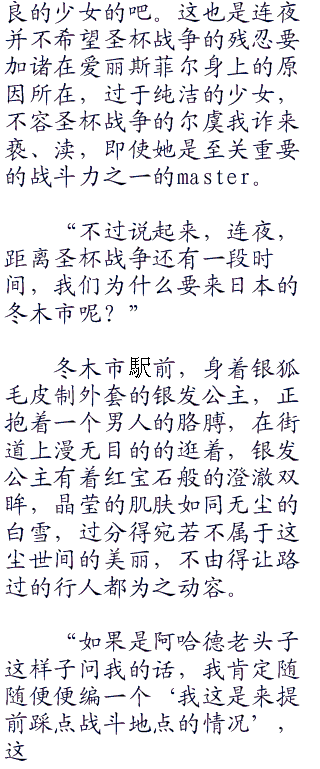 良的少女的吧。这也是连夜
并不希望圣杯战争的残忍要
加诸在爱丽斯菲尔身上的原
因所在，过于纯洁的少女，
不容圣杯战争的尔虞我诈来
亵、渎，即使她是至关重要
的战斗力之一的master。
“不过说起来，连夜，
距离圣杯战争还有一段时
间，我们为什么要来日本的
冬木市呢？”
冬木市駅前，身着银狐
毛皮制外套的银发公主，正
抱着一个男人的胳膊，在街
道上漫无目的的逛着，银发
公主有着红宝石般的澄澈双
眸，晶莹的肌肤如同无尘的
白雪，过分得宛若不属于这
尘世间的美丽，不由得让路
过的行人都为之动容。
“如果是阿哈德老头子
这样子问我的话，我肯定随
随便便编一个‘我这是来提
前踩点战斗地点的情况’，
这